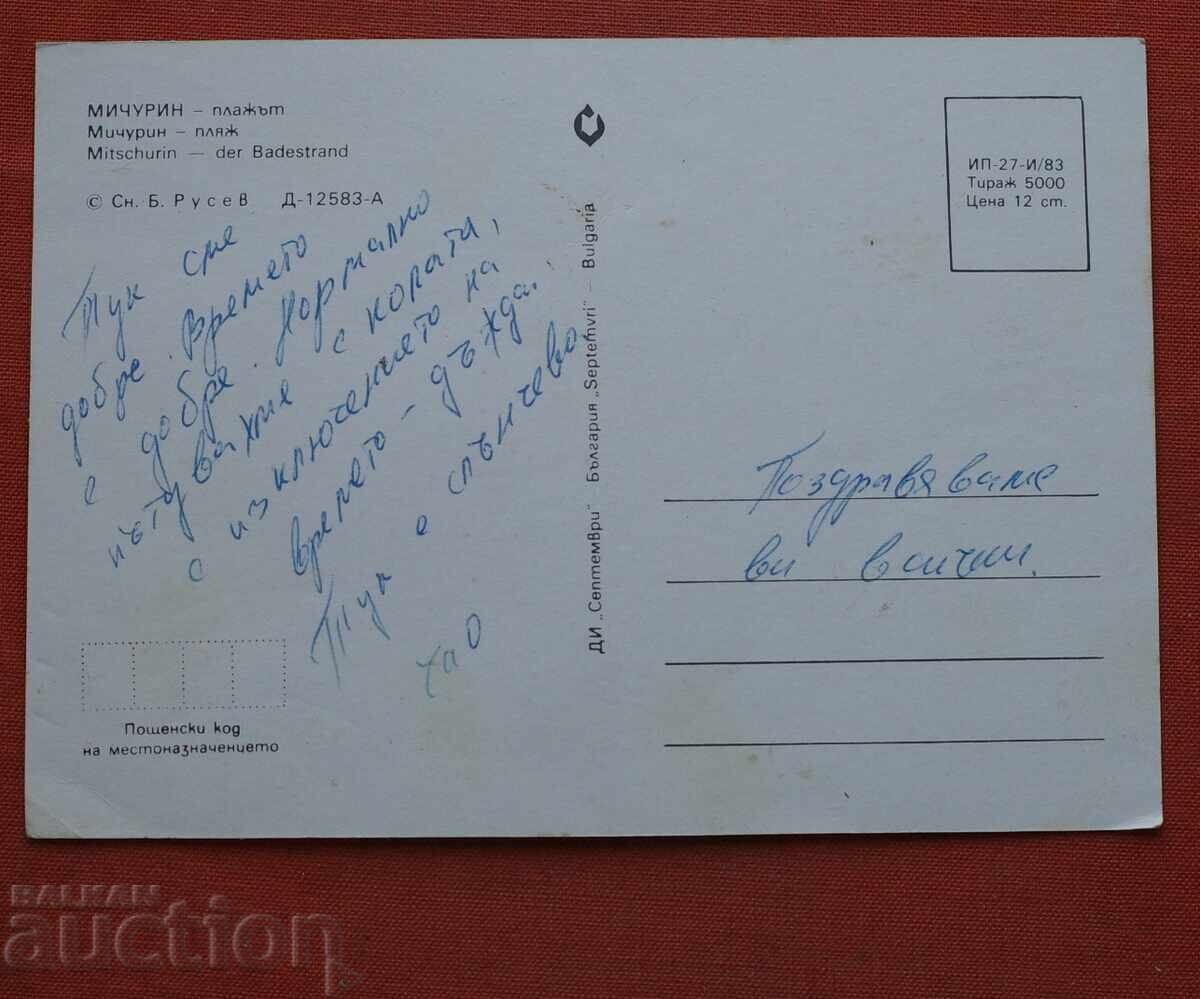 МИЧУРИН – плажът
Мичурин – пляж
Mitschurin — der Badestrand
© Сн. Б. Русев Д-12583-А
Тук сме
добре. Времето
е добре. Нормално
пътувахме с колата,
с изключението на
времето – дъжда.
Тук е слънчево.
Чао
Пощенски код
на местоназначението
ДИ „Септември" – България „Septemvri" – Bulgaria
ИП-27-И/83
Тираж 5000
Цена 12 ст.
Поздравяваме
ви всички.
BALKAN
auction